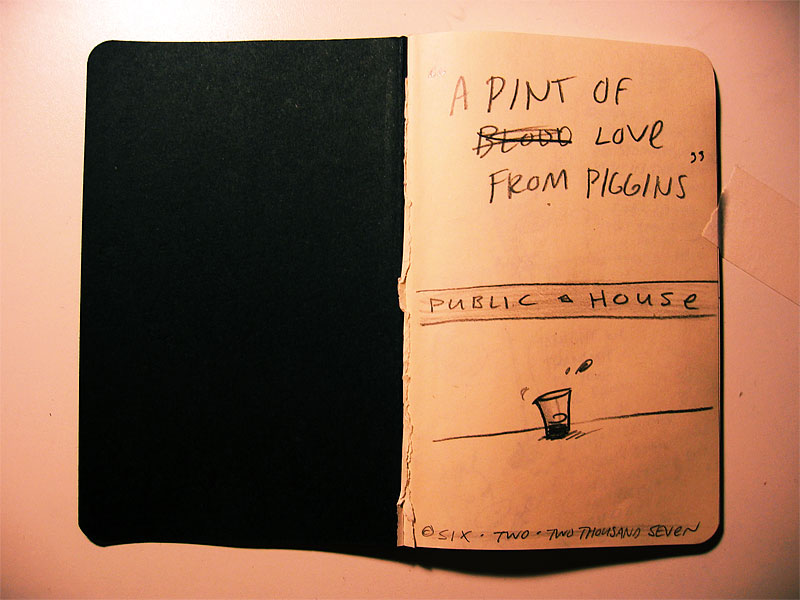 A PINT OF
BLOOD LOVE
FROM PIGGINS"
PUBLIC • HOUSE
SIX • TWO • TWO THOUSAND SEVEN